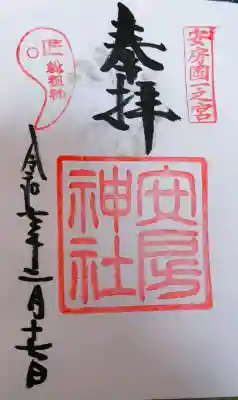 安房國一之宮
奉拝
安房神社
令和七年二月十七日